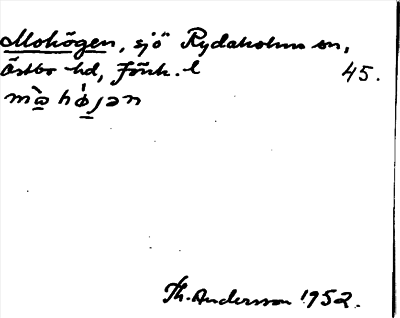 Mohögen, sjö Rydaholms sn,
Östbo hd, Jönk. l
45.
mə̀ hø̀jən
Th. Andersson 1952.